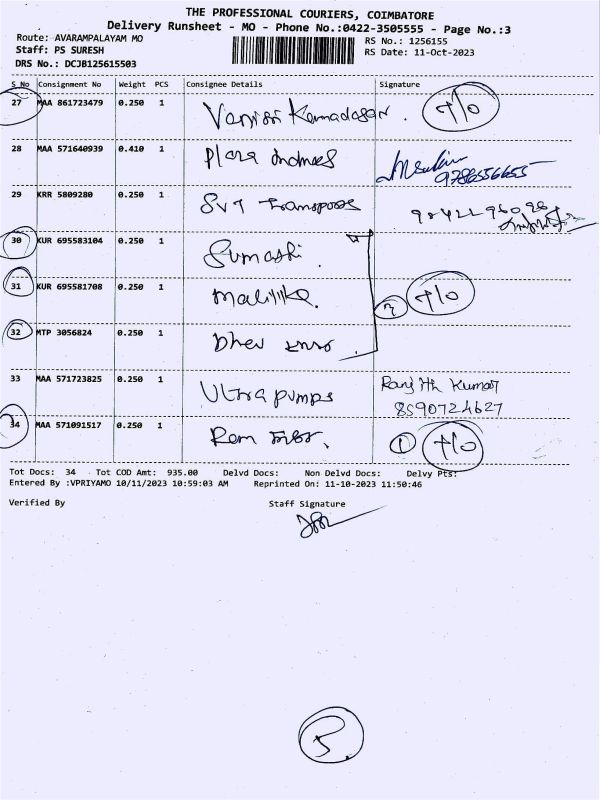 THE PROFESSIONAL COURIERS, COIMBATORE
Delivery Runsheet - MO - Phone No.:0422-3505555 - Page No.:3
Route: AVARAMPALAYAM MO
RS No.: 1256155
Staff: PS SURESH
RS Date: 11-Oct-2023
DRS No.: DCJB125615503
S No Consignment No Weight PCS Consignee Details Signature
27 MAA 861723479 0.250 1
28 MAA 571640939 0.410 1 Plaza
9786556655
29 KRR 5809280 0.250 1 SVT Transposs
30 KUR 695583104 0.250 1 Sumathi
31 KUR 695581708 0.250 1 Mallika.
32 MTP 3056824 0.250 1 Dhev
33 MAA 571723825 0.250 1 Ultra pumps Ranjith Kumar
8590724627
34 MAA 571091517 0.250 1 Ram
1
Tot Docs: 34 Tot COD Amt: 935.00 Delvd Docs: Non Delvd Docs: Delvy Pts:
Entered By :VPRIYAMO 10/11/2023 10:59:03 AM Reprinted On: 11-10-2023 11:50:46
Verified By Staff Signature